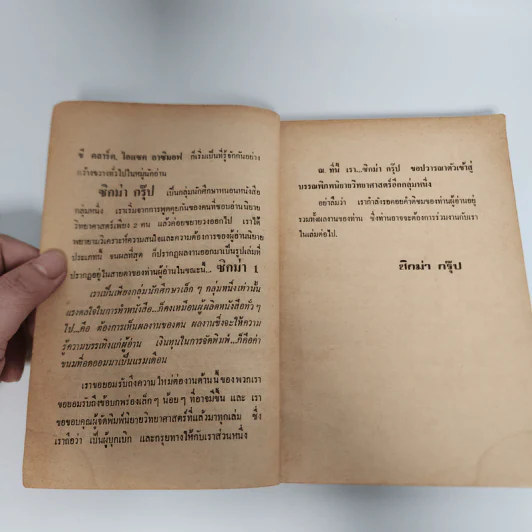 ซี คลาร์ค, ไอแซค อาซิมอฟ ก็เริ่มเป็นที่รู้จักกันอย่าง
กว้างขวางทั่วไปในหมู่นักอ่าน
ซิกม่า กรุ๊ป เป็นกลุ่มนักศึกษาหนอนหนังสือ
กลุ่มหนึ่ง เราเริ่มจากการพูดคุยกันของคนที่ชอบอ่านนิยาย
วิทยาศาสตร์เพียง 2 คน แล้วค่อยขยายวงออกไป เราได้
พยายามวิเคราะห์ความสนใจและความต้องการของผู้อ่านนิยาย
ประเภทนี้ จนผลที่สุด ก็ปรากฏผลงานออกมาเป็นรูปเล่มที่
ปรากฏอยู่ในสายตาของท่านผู้อ่านในขณะนี้... ซิกม่า 1
เราเป็นเพียงกลุ่มนักศึกษาเล็ก ๆ กลุ่มหนึ่งเท่านั้น
แรงดลใจในการทำหนังสือ...ก็คงเหมือนผู้ผลิตหนังสือทั่ว ๆ
ไป...คือ ต้องการเห็นผลงานของตน ผลงานซึ่งจะให้ความ
รู้ความบรรเทิงแก่ผู้อ่าน เงินทุนในการจัดพิมพ์...ก็คือค่า
ขนมที่อดออมมาเป็นแรมเดือน
เราขอยอมรับถึงความใหม่ต่องานด้านนี้ของพวกเรา
ขอยอมรับถึงข้อบกพร่องเล็ก ๆ น้อย ๆ ที่อาจมีขึ้น และ เรา
ขอขอบคุณผู้จัดพิมพ์นิยายวิทยาศาสตร์ที่แล้วมาทุกเล่ม ซึ่ง
เราถือว่า เป็นผู้บุกเบิก และกรุยทางให้กับเราส่วนหนึ่ง
ณ. ที่นี้ เรา...ซิกม่า กรุ๊ป ขอปวารณาตัวเข้าสู่
บรรณพิภพนิยายวิทยาศาสตร์อีกกลุ่มหนึ่ง
อย่าลืมว่า เรากำลังรอคอยคำติชมของท่านผู้อ่านอยู่
รวมทั้งผลงานของท่าน ซึ่งท่านอาจจะต้องการร่วมงานกับเรา
ในเล่มต่อไป.
ซิกม่า กรุ๊ป